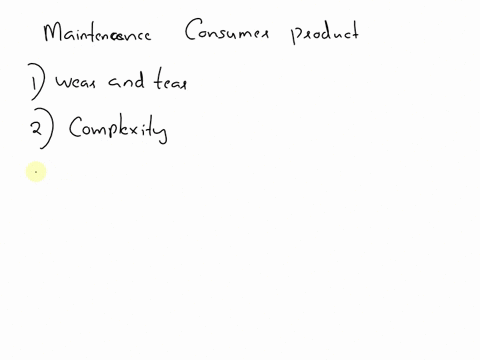 Maintenance Consumer product
1) wear and tear
2) Complexity